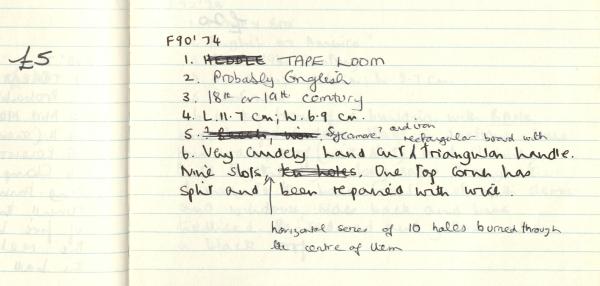 £5
F90'74
1. HEDDLE TAPE LOOM
2. Probably English
3. 18th or 19th century
4. L.11.7 cm; W. 6.9 cm.
5. ? Beech, iron Sycamore? and iron
rectangular board with
6. Very crudely hand cut / triangular handle.
Nine slots, ten holes, One top corner has
split and been repaired with wire.
horizontal series of 10 holes burned through
the centre of them